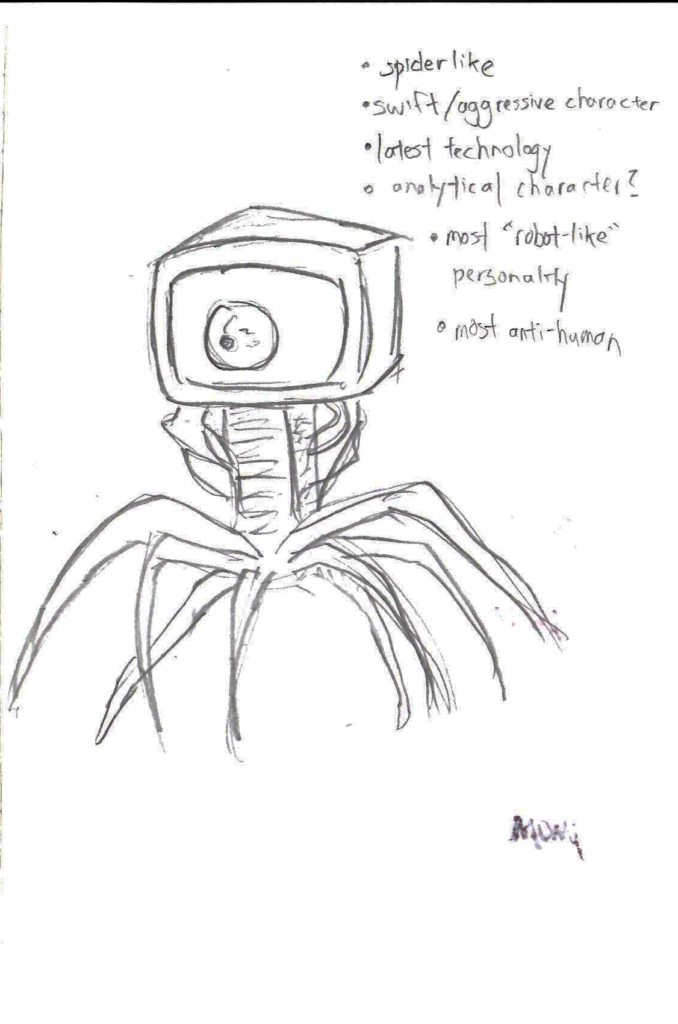 • spiderlike
• swift/aggressive character
• latest technology
• analytical character?
• most "robot-like"
personality
• most anti-human